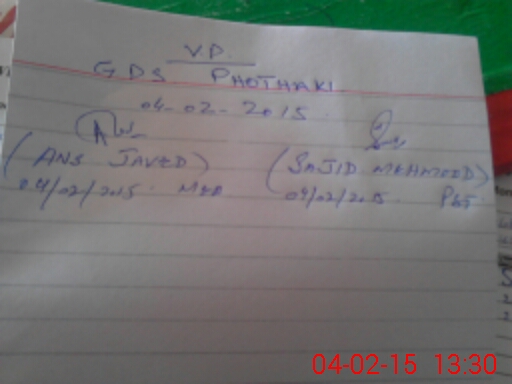 V.P.
GDS PHOTHAKI
04-02-2015.
(ANS JAVED) (SAJID MEHMOOD)
04/02/2015. MEA 04/02/2015.
04-02-15 13:30